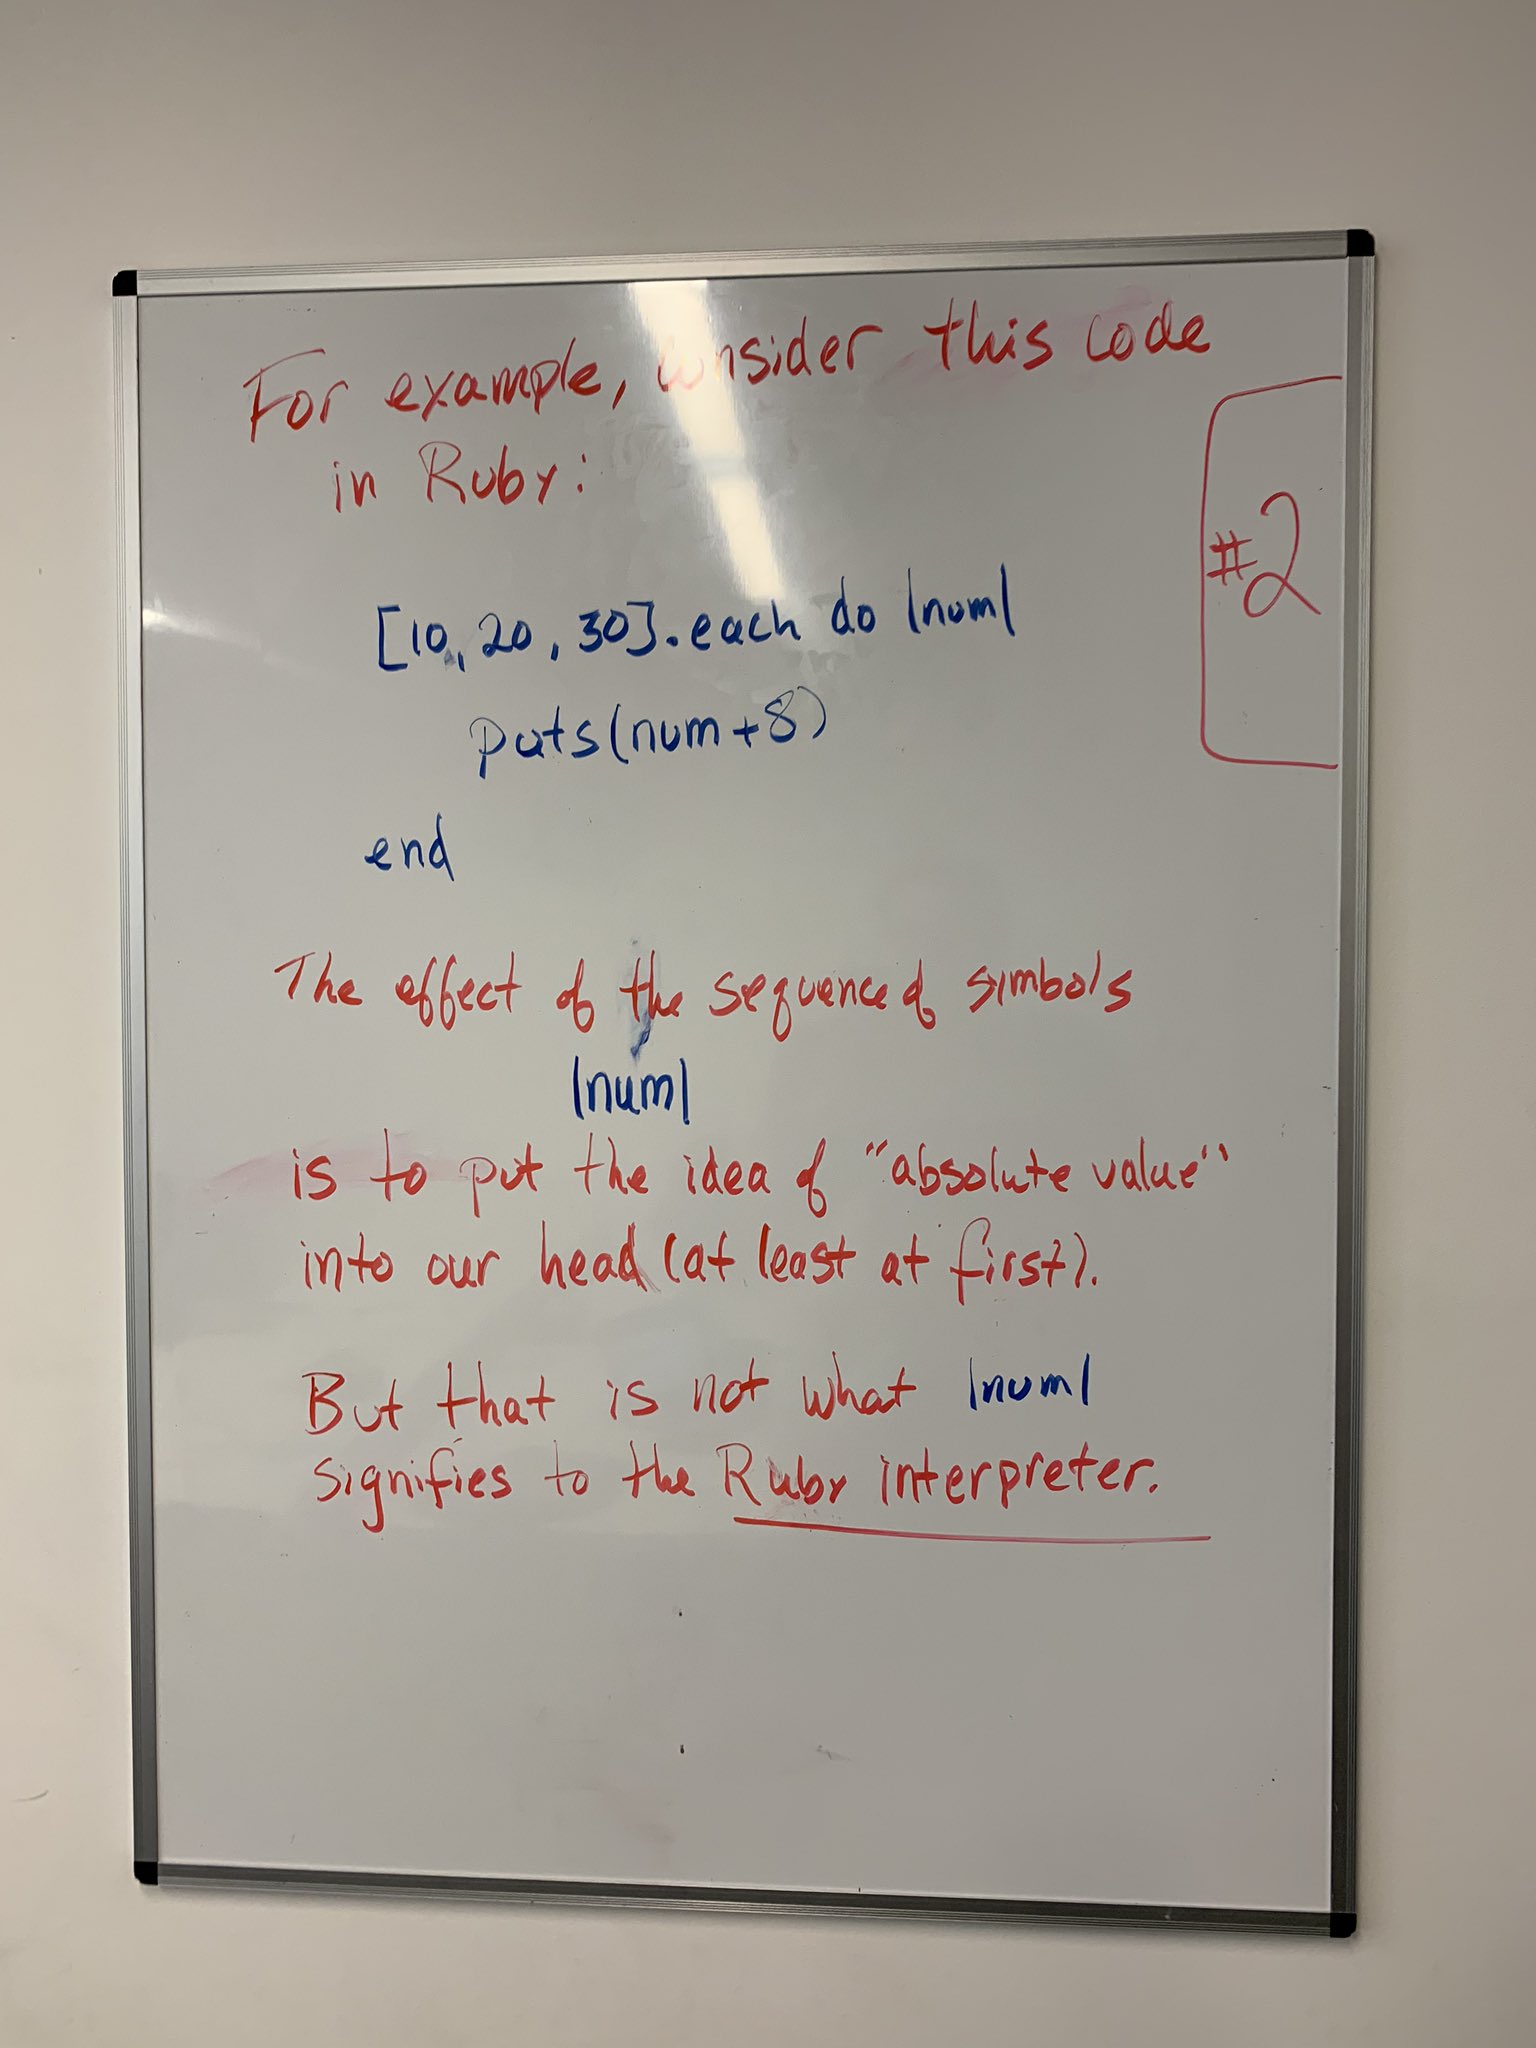 For example, consider this code
in Ruby:
#2
[10, 20, 30].each do |num|
puts(num+8)
end
The effect of the sequence of symbols
|num|
is to put the idea of "absolute value"
into our head (at least at first).
But that is not what |num|
signifies to the Ruby interpreter.